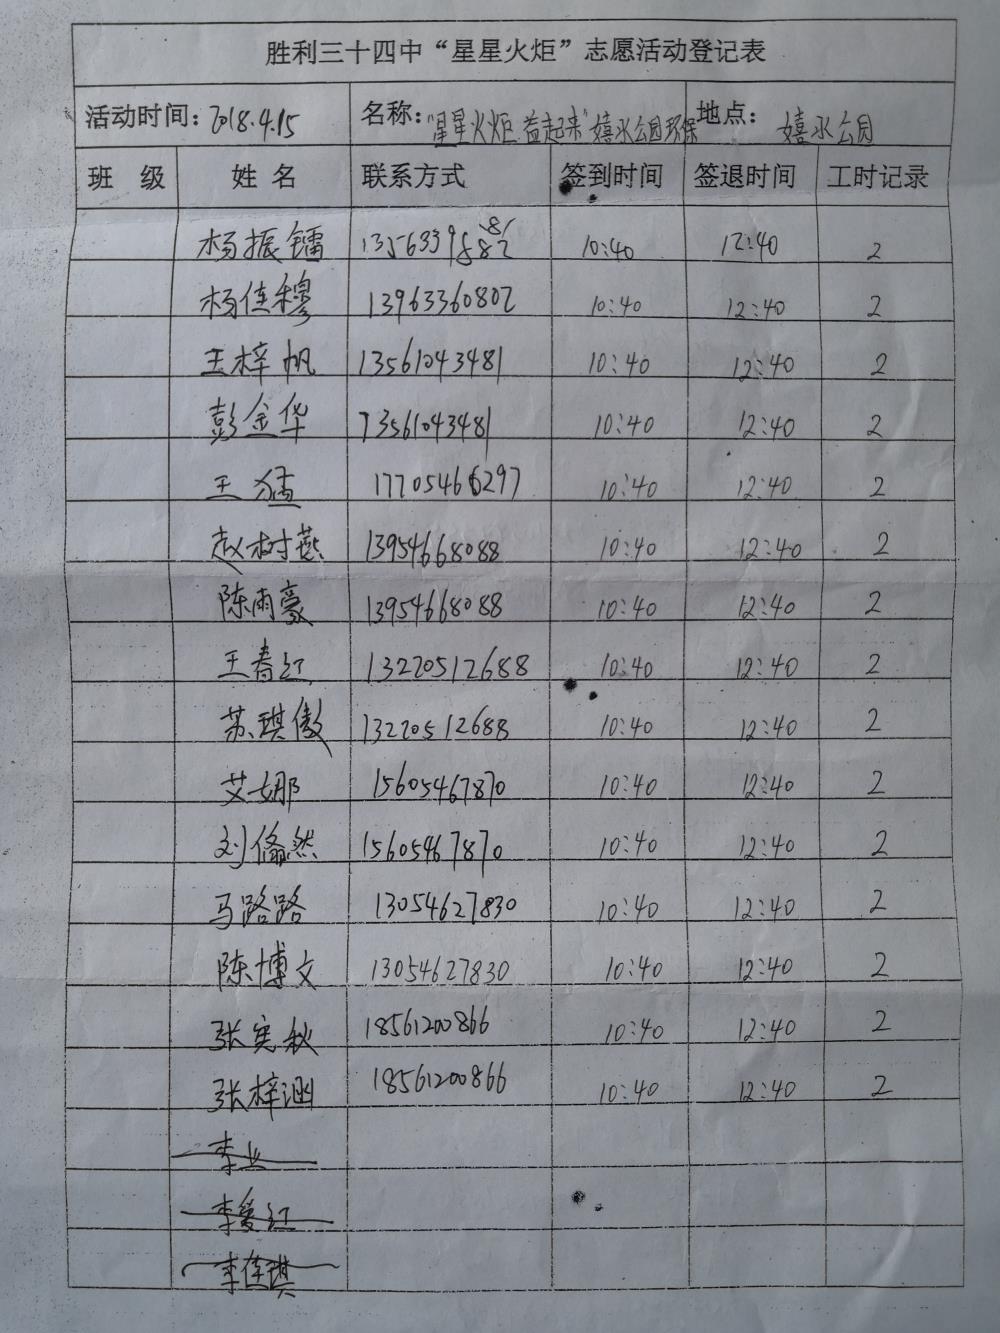 胜利三十四中“星星火炬”志愿活动登记表
活动时间：2018.4.15 名称：“星星火炬 益起来”嬉水公园环保 地点：嬉水公园
班 级 姓 名 联系方式 签到时间 签退时间 工时记录
杨振镭 10:40 12:40 2
杨佳穆 13963360802 10:40 12:40 2
王梓帆 13561043481 10:40 12:40 2
彭金华 13561043481 10:40 12:40 2
王猛 17705466297 10:40 12:40 2
赵树燕 13954668088 10:40 12:40 2
陈雨豪 13954668088 10:40 12:40 2
王春红 13220512688 10:40 12:40 2
苏琪傲 13220512688 10:40 12:40 2
艾娜 15605467870 10:40 12:40 2
刘翛然 15605467870 10:40 12:40 2
马路路 13054627830 10:40 12:40 2
陈博文 13054627830 10:40 12:40 2
张宪秋 18561200866 10:40 12:40 2
张梓涵 18561200866 10:40 12:40 2
李业
李爱红
李佳琪